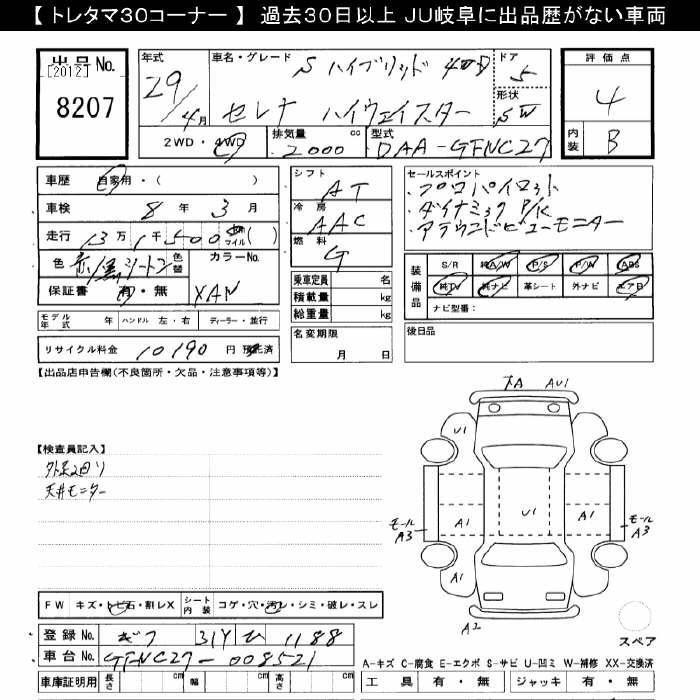 【 トレタマ30コーナー 】 過去30日以上 JU岐阜に出品歴がない車両
出品No.
[2012]
8207
年式 車名・グレード ドア
29/4月 S ハイブリッド 4WD 5
セレナ ハイウェイスター 形状 SW
2WD・4WD 排気量 2000 cc 型式 DAA-GFNC27
評価点
4
内装 B
車歴 自家用・( )
車検 8年 3月
走行 13万1千500 マイル( )
色 赤/黒ツートン 色替 カラーNo.
保証書 有・無 XAN
シフト AT
冷房 AAC
燃料 G
乗車定員 名
積載量 kg
総重量 kg
セールスポイント
・プロパイロット
・ダイナミック P/K
・アラウンドビューモニター
装備品 S/R 純A/W P/S P/W ABS
純TV 純ナビ 革シート 外ナビ エアB
ナビ型番:
モデル年式 年 ハンドル 左・右 ディーラー・並行
リサイクル料金 10190 円 預託済
名変期限
月 日
後日品
【出品店申告欄(不良箇所・欠品・注意事項等)】
大A AU1
U1
【検査員記入】
外足廻り
天井モニター
モール A3 A1 U1 A1 モール A3
A1 A1
A2
スペア
FW キズ・トビ石・割レX シート内装 コゲ・穴・汚レ・シミ・破レ・スレ
登録No. ギフ 314 ひ 1188
車台No. GFNC27-008521
A-キズ C-腐食 E-エクボ S-サビ U-凹ミ W-補修 XX-交換済
車庫証明用 長さ cm 幅 cm 高さ cm
工具 有・無 ジャッキ 有・無